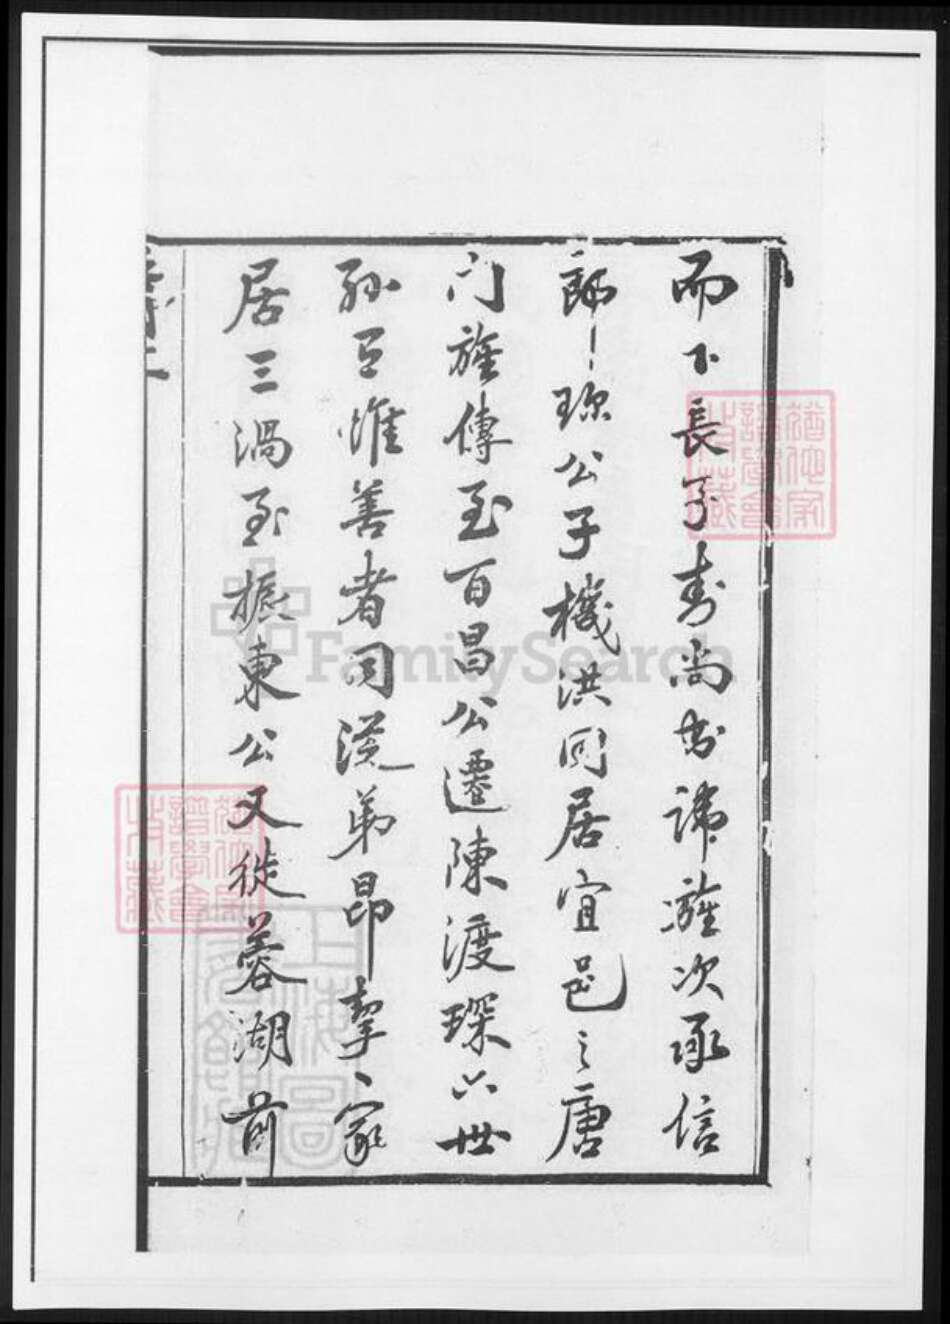 而下長子壽尚書諱漼次承信
郎琛公子機洪同居宜邑之唐
门漼傳至百昌公遷陳渡琛六世
孫巨惟善者同從弟昂挈家
居三渦至振東公又徙蓉湖前
FamilySearch